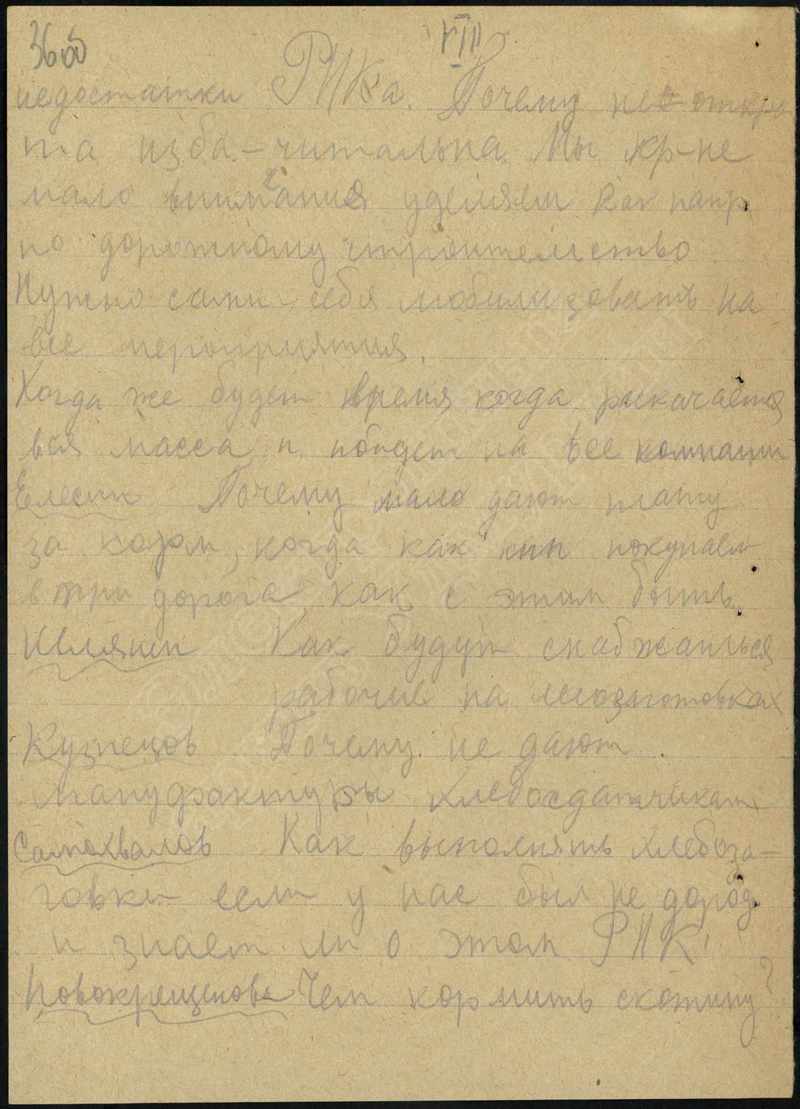 36об
VIII
недостатки РИКа. Почему не откры
та изба-читальна. Мы кр-не
мало внимания уделяем как напр
по дорожному строительство.
Нужно сами себя мобилизовать на
все мероприятия.
Когда же будет время когда раскачается
вся масса и пойдет на все компании
Елесин Почему мало дают плату
за корм, когда как мы покупаем
в три дорога, как с этим быть.
Как будут снабжаться
рабочие на лесозаготовках
Кузнецов Почему не дают
мануфактуры хлебосдатчикам
Самохвалов Как выполнять хлебоза-
говки если у нас был не дород
и знает ли о этом РИК!
Новокрещенов Чем кормить скотину?